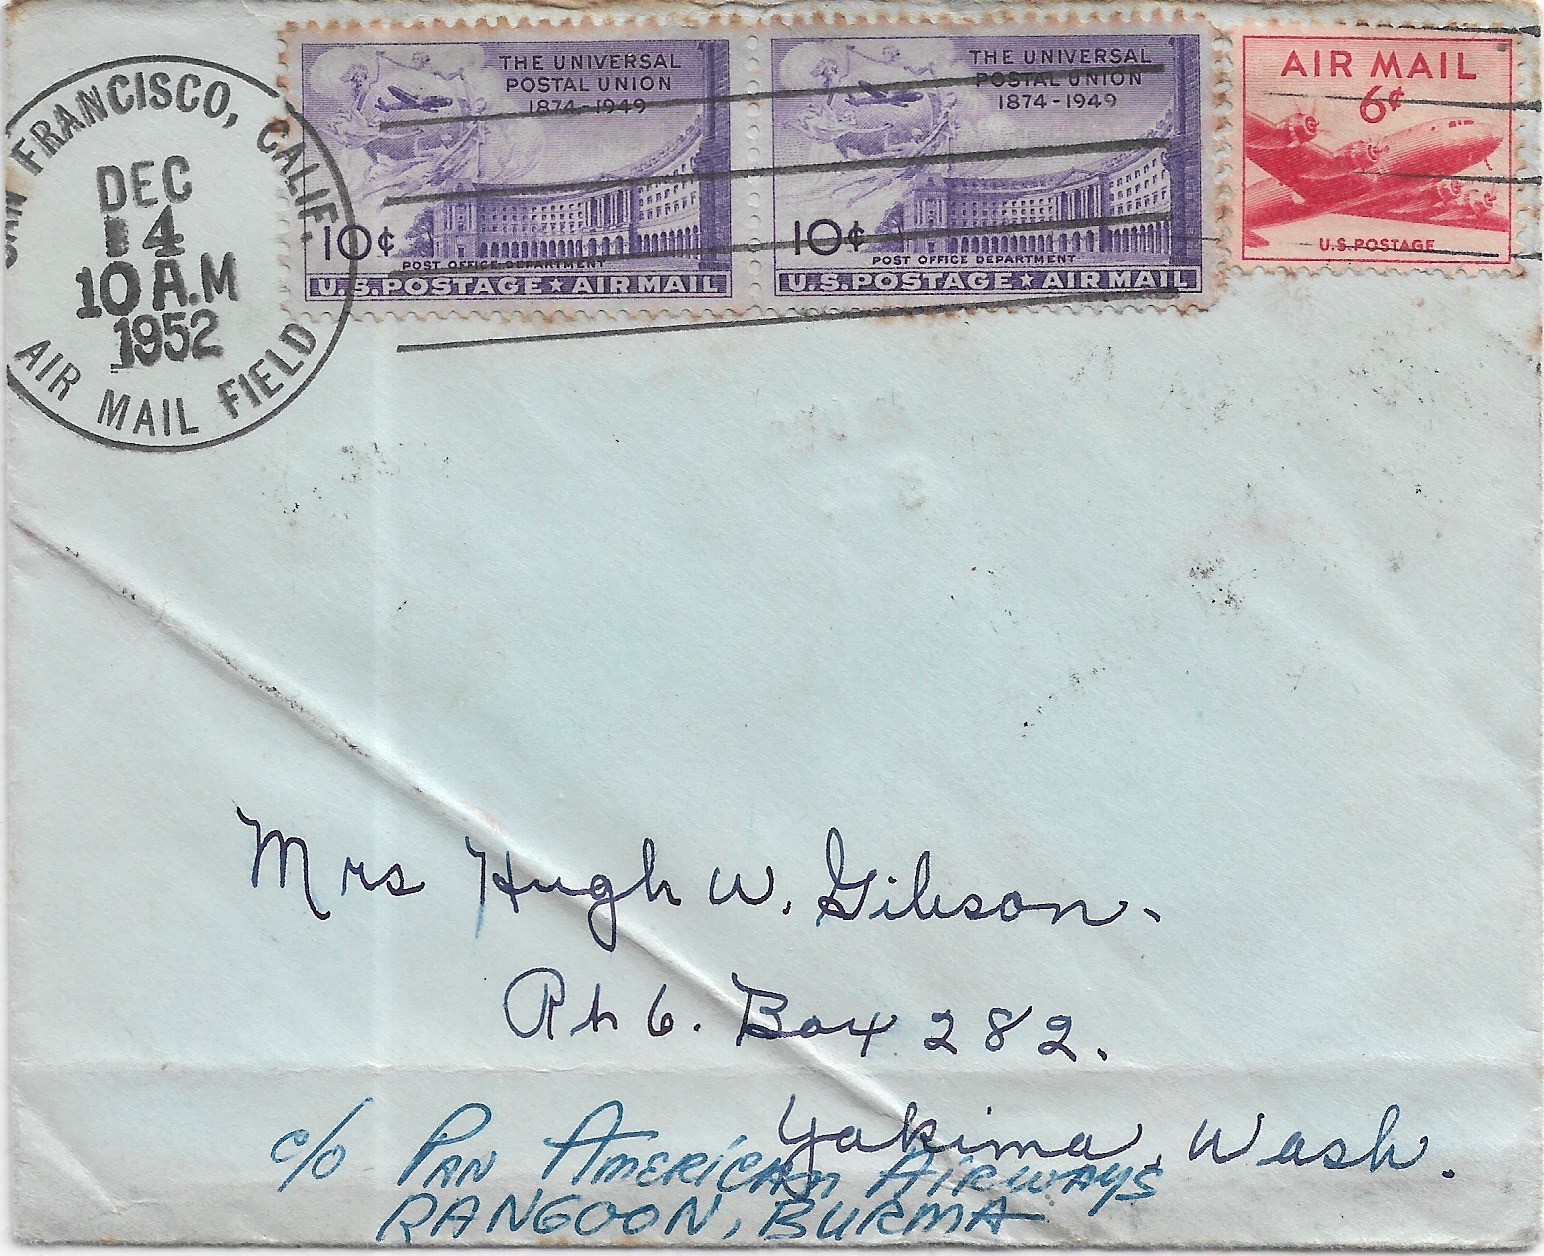 SAN FRANCISCO, CALIF.
DEC
4
10 A.M
1952
AIR MAIL FIELD
THE UNIVERSAL
POSTAL UNION
1874-1949
10¢
POST OFFICE DEPARTMENT
U.S.POSTAGE★AIRMAIL
THE UNIVERSAL
POSTAL UNION
1874-1949
10¢
POST OFFICE DEPARTMENT
U.S.POSTAGE★AIRMAIL
AIR MAIL
6¢
U.S.POSTAGE
Mrs Hugh W. Gibson.
Rt 6. Box 282.
Yakima, Wash.
c/o PAN AMERICAN AIRWAYS
RANGOON, BURMA